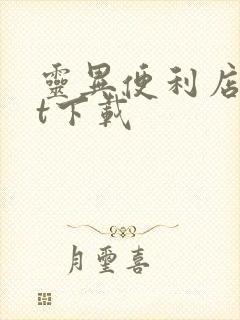 靈異便利店
t下載
月璽喜